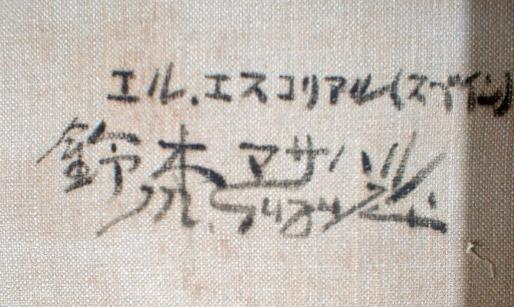 エル.エスコリアル(スペイン)
鈴木 マサハル